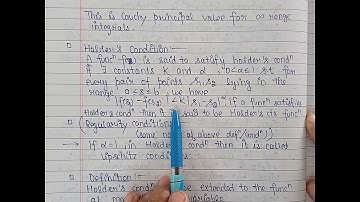 This is Cauchy principal value for ∞ range
integrals.
Holder's Condition :-
A funcⁿ f(s) is said to satisfy Holder's condⁿ
if ∃ constants K and α, 0<α≤1 s.t for
every pair of points s₁, s₂ lying in the
range a≤s≤b, we have
|f(s₁)-f(s₂)| ≤ K|s₁-s₂|^α If a funcⁿ satisfies
Holder's condⁿ then it is said to be Holder's cts funcⁿ
(Regularity condition)
(some name of above defⁿ/condⁿ)
→ If α=1, in Holder's condⁿ then it is called
Lipschitz condition.
Definition :-
Holder's condⁿ be extended to the funcⁿ
of variable